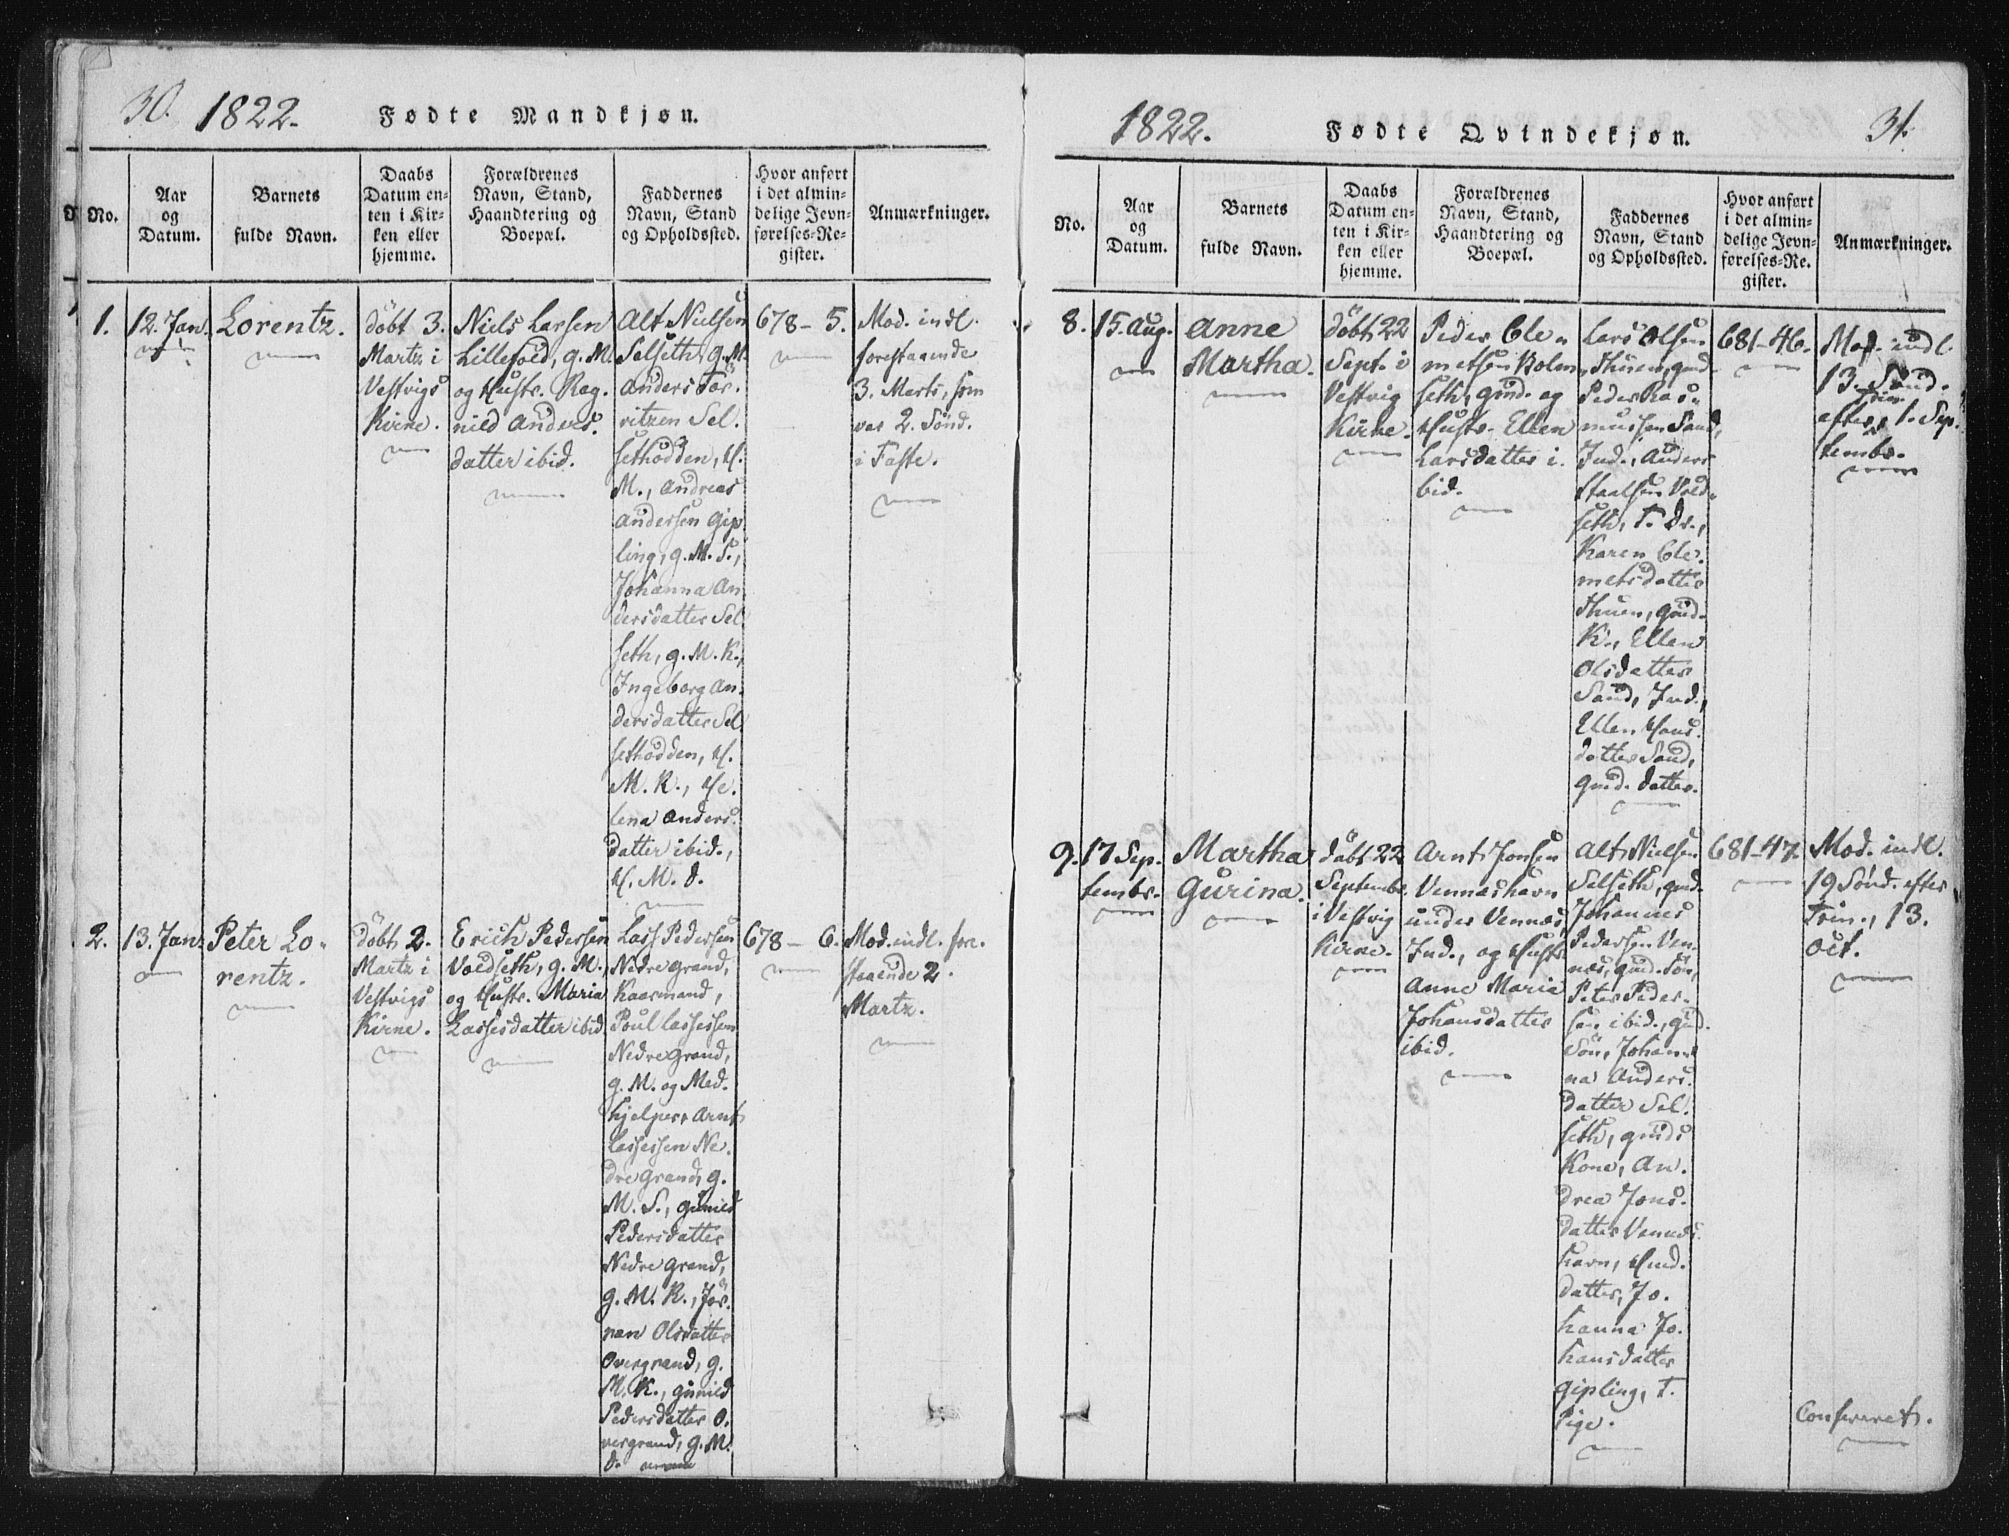 30. 1822. Fødte Mandkjøn.
No.
Aar
og
Datum.
Barnets
fulde Navn.
Daabs
Datum en-
ten i Kir-
ken eller
hjemme.
Forældrenes
Navn, Stand,
Haandtering og
Boepæl.
Faddernes
Navn, Stand
og Opholdssted.
Hvor anført
i det almin-
delige Jevn-
førelses-Re-
gister.
Anmærkninger.
1.
12. Jan.
Lorentz.
döbt 3.
Martz i
Vestvigs
Kirke.
Niels Larsen
Lillefoed, g. M.
og Hustr. Rag.
nild Anders.
datter ibid.
Alt Nielsen
Selseth, g. M.
Anders Tör.
ritzen Sel.
sethodden, H.
M., Andreas
Andersen Gip
ling, g. M. S.,
Johanna An
dersdatter Sel
seth, g. M. K.,
Ingeborg An.
dersdatter Sel
sethodden, H.
M. K., He.
lena Anders.
datter ibid.,
H. M. D.
678 - 5.
Mod. indl.
forestaaende
3. Marts, som
var 2. Sönd.
i Faste.
2.
13. Jan.
Peter Lo-
rentz.
döbt 2.
Martz i
Vestvigs
Kirke.
Erich Pedersen
Voldseth, g. M.,
og Hustr. Maria
Lassesdatter ibid.
Lass Pedersen
Nedregrand,
Kaarmand,
Poul Lassessen
Nedregrand,
g. M. og Med.
hjelper, Arnt
Lassessen Ne.
dregrand, g.
M. S., Gunild
Pedersdatter
Nedregrand,
g. M. K., Jör.
nan Olsdatter
Overgrand, g.
M. K., Gunild
Pedersdatter O.
vergrand, g. M.
D.
678 - 6.
Mod. indl. fore.
staaende 2.
Martz.
1822. Fødte Qvindekjøn. 31.
No.
Aar
og
Datum.
Barnets
fulde Navn.
Daabs
Datum en-
ten i Kir-
ken eller
hjemme.
Forældrenes
Navn, Stand,
Haandtering og
Boepæl.
Faddernes
Navn, Stand
og Opholdssted.
Hvor anført
i det almin-
delige Jevn-
førelses-Re.
gister.
Anmærkninger.
8.
15. Aug.
Anne
Martha.
döbt 22
Sept. i
Vestvig
Kirke.
Peder Cle-
metsen Bolm
seth, gmd. og
Hustr. Ellen
Larsdatter i.
bid.
Lars Olsen
Thuen, gmd.
Peder Ras-
mussen Sand,
Ind., Anders
Staalsen Vold-
seth, T. Dr.,
Karen Cle.
metsdatter
Thuen, gmd.
K., Ellen
Olsdatter
Sand, Ind.,
Ellen Hans.
datter Sand,
gmd. datter.
681-46.
Mod. indl.
13. Sönd.
efter Trin. 1. Sep.
tembr.
9.
17 Sep.
tembr.
Martha
Gurina.
döbt 22
Septembr.
i Vestvig
Kirke.
Arnt Jonsen
Vennæshavn
under Vennæs,
Ind., og Hustr.
Anne Maria
Johansdatter
ibid.
Alt Nielsen
Selseth, gmd.
Johannes
Pedersen Ven-
næs, gmd. Sön,
Peter Peder-
sen ibid., gmd.
Sön, Johan-
na Anders.
datter Sel.
seth, gmds
Kone, An.
drea Jons.
datter Vennæs.
havn, Hmd.
datter, Jo.
hanna Jo.
hansdatter
Gipling, T.
Pige.
681-47.
Mod. indl.
19 Sönd. efter
Trin., 13.
Oct.
Confereret.